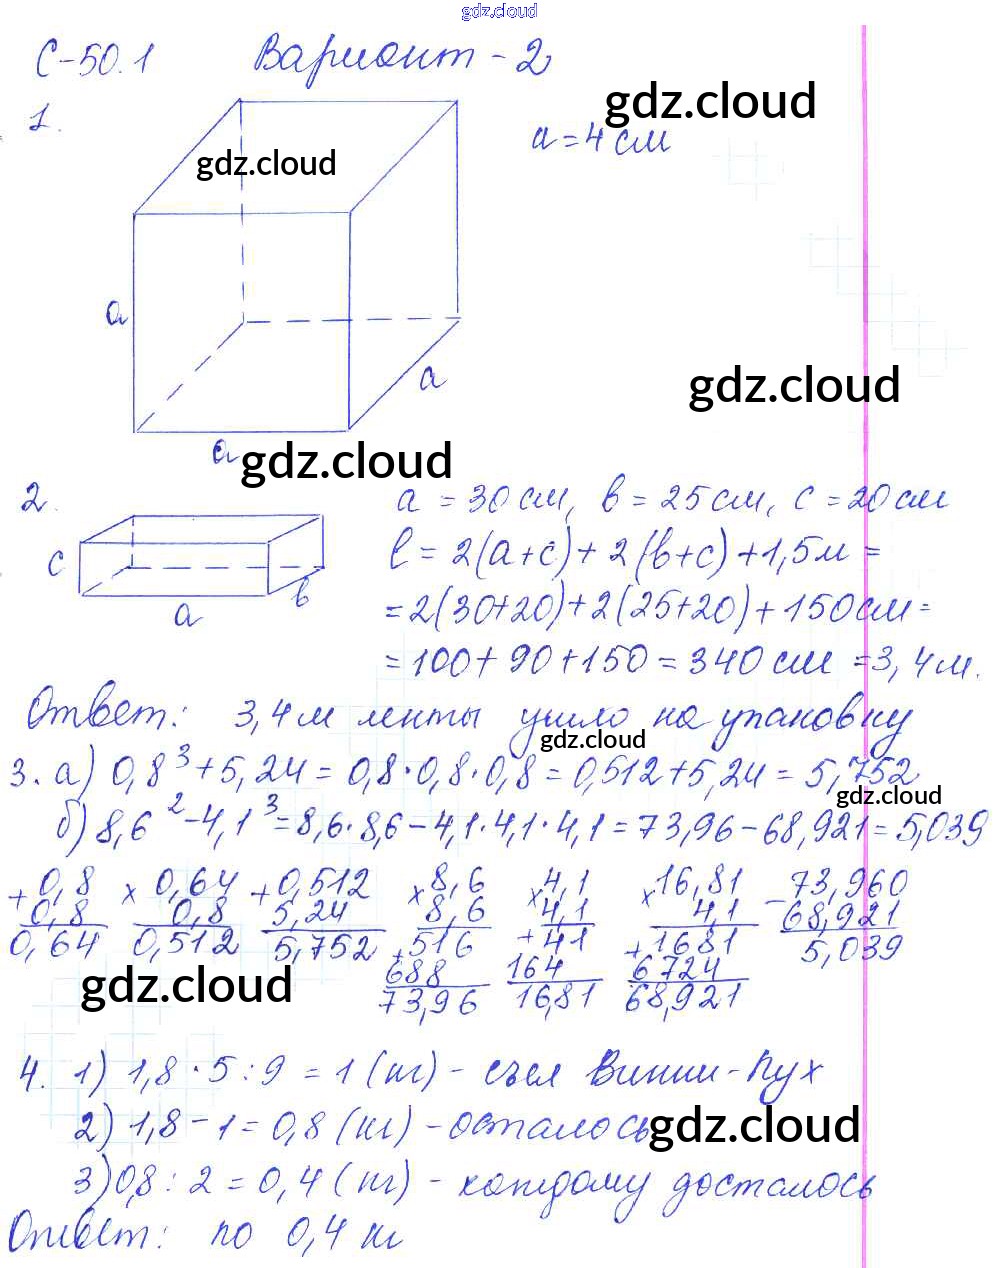 gdz.cloud
С-50.1 Вариант-2
gdz.cloud
1.
a = 4 см
gdz.cloud
a
gdz.cloud
a
a
gdz.cloud
2.
a = 30 см, в = 25 см, c = 20 см
c
в
a
l = 2(a+c) + 2(в+c) + 1,5м =
= 2(30+20) + 2(25+20) + 150 см =
= 100 + 90 + 150 = 340 см = 3,4 м.
Ответ: 3,4 м ленты ушло на упаковку
gdz.cloud
3. а) 0,8³ + 5,24 = 0,8·0,8·0,8 = 0,512 + 5,24 = 5,752
gdz.cloud
б) 8,6² - 4,1³ = 8,6·8,6 - 4,1·4,1·4,1 = 73,96 - 68,921 = 5,039
+ 0,8 × 0,64 + 0,512 × 8,6 × 4,1 × 16,81 - 73,960
0,8 0,8 5,24 8,6 4,1 4,1 68,921
0,64 0,512 5,752 + 516 + 41 + 1681 5,039
688 164 6724
73,96 16,81 68,921
gdz.cloud
4. 1) 1,8 · 5 : 9 = 1 (кг) - съел Винни-Пух
2) 1,8 - 1 = 0,8 (кг) - осталось
gdz.cloud
3) 0,8 : 2 = 0,4 (кг) - каждому досталось
Ответ: по 0,4 кг